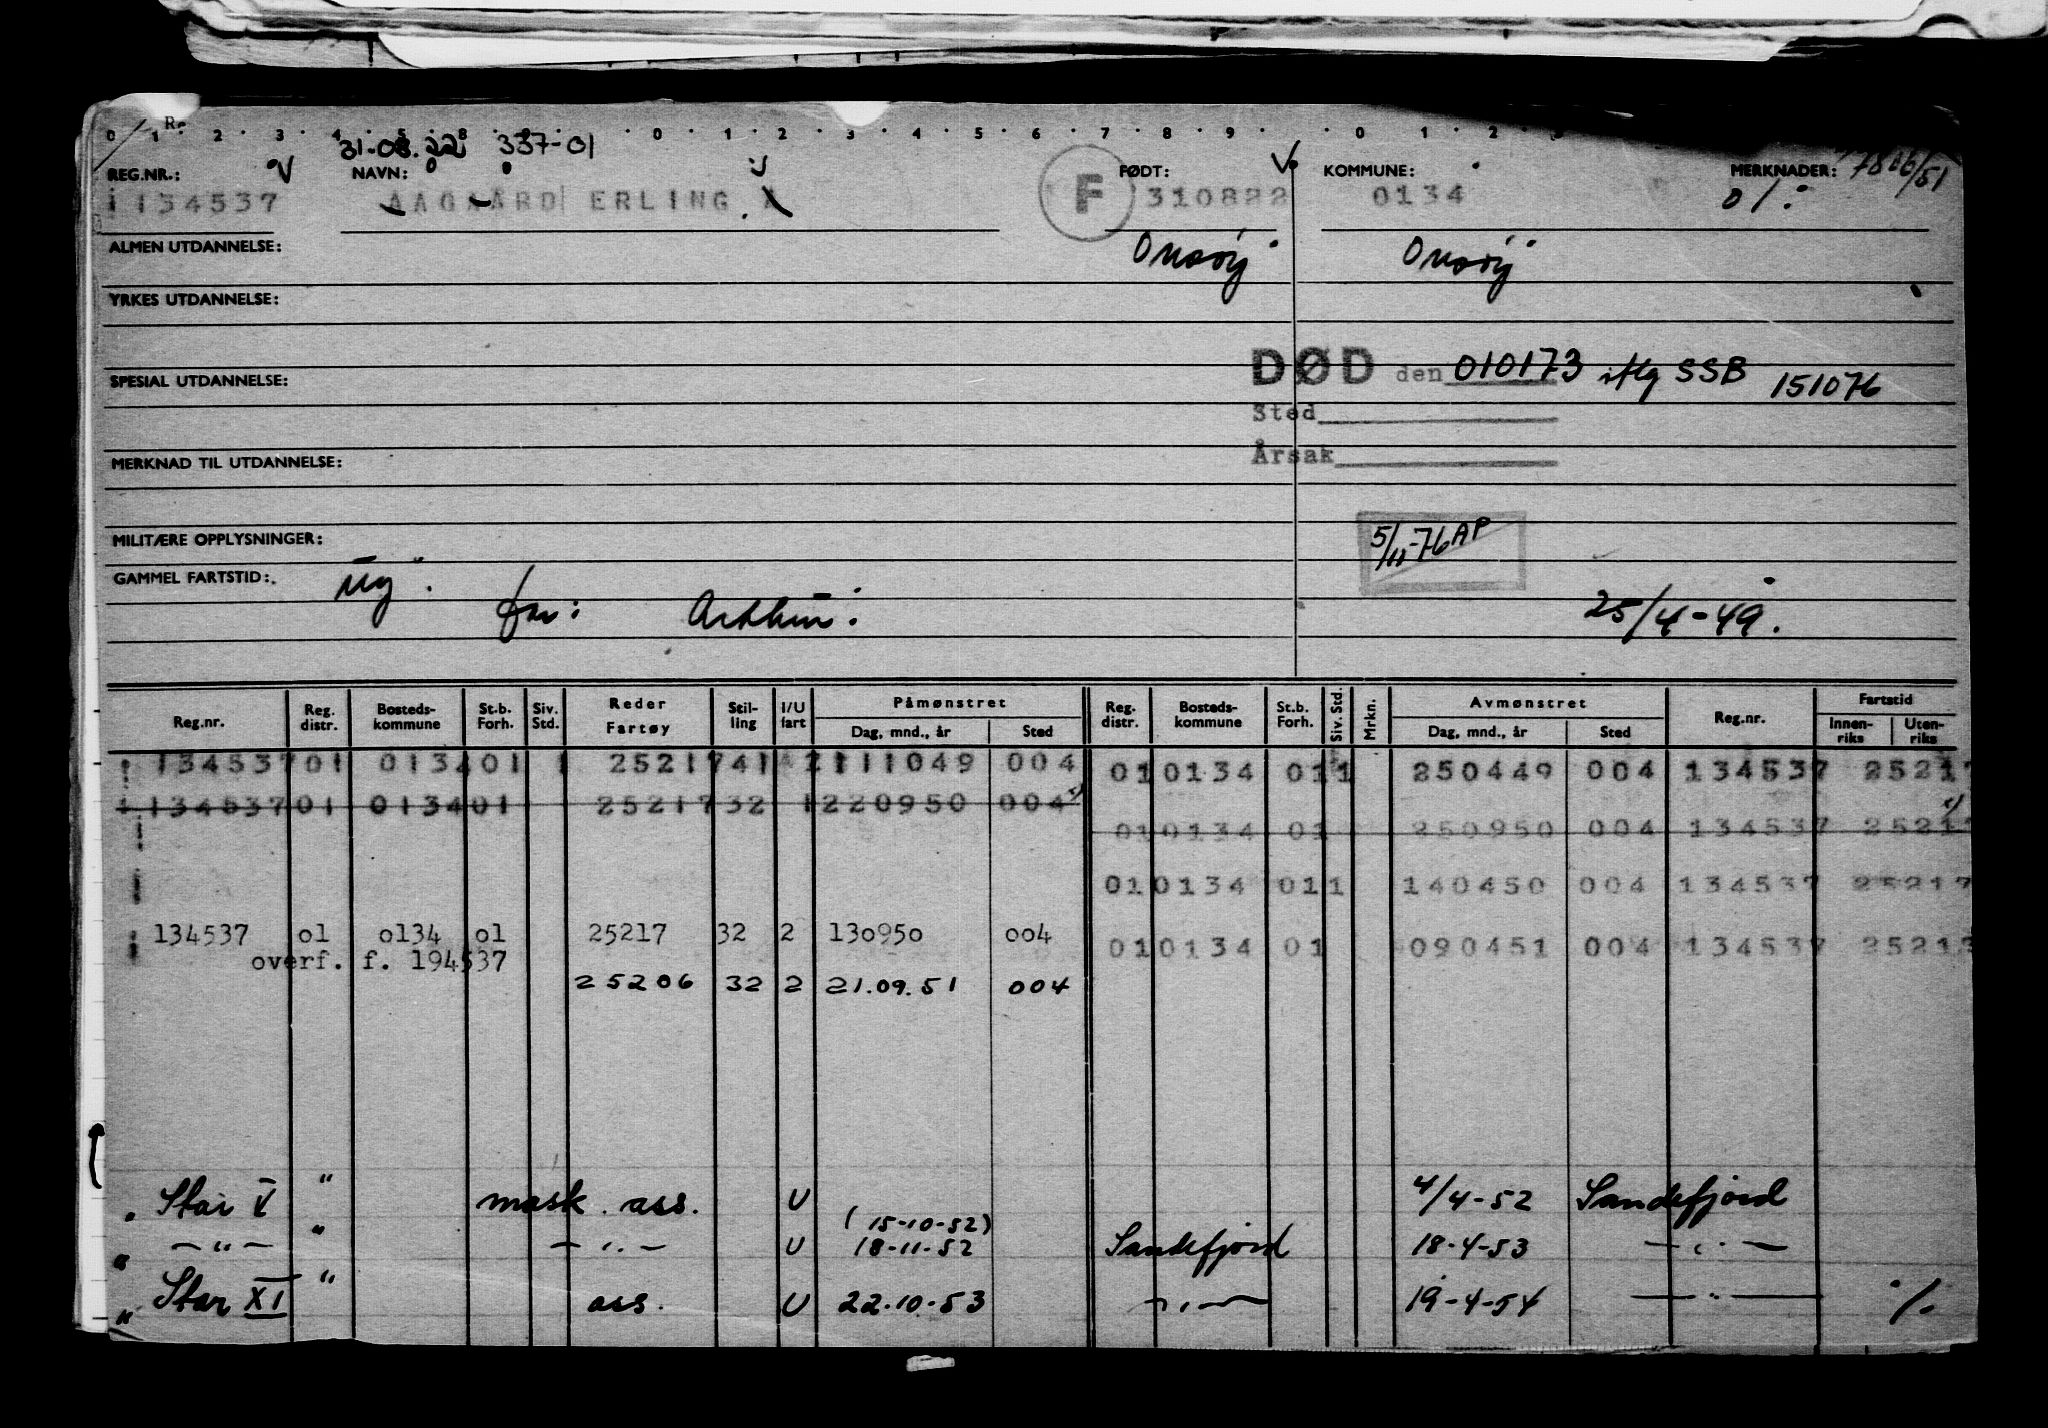 0 1 2 3 4 5 6 0 1 2 3 4 5 6 7 8 9 0 1 2
31-08.22 337-01
REG.NR.: NAVN: FØDT: KOMMUNE: MERKNADER: 7806/51
134537 AAGAARD ERLING A F 310822 0134 01
ALMEN UTDANNELSE: Onsøy Onsøy
YRKES UTDANNELSE:
DØD den 010173 iflg SSB 151076
SPESIAL UTDANNELSE:
Sted
Årsak
MERKNAD TIL UTDANNELSE:
MILITÆRE OPPLYSNINGER: 5/11-76 AP
GAMMEL FARTSTID:
far: Arthur 25/4-49.
Reg.nr. Reg. distr. Bosteds-kommune St.b. Forh. Siv. Std. Reder Fartøy Stil-ling I/U fart Påmønstret Dag, mnd., år Sted Reg. distr. Bosteds-kommune St.b. Forh. Siv. Std. Mrkn. Avmønstret Dag, mnd., år Sted Reg.nr. Fartstid Innen-riks Uten-riks
134537 01 0134 01 1 25217 41 2 111049 004 01 0134 01 1 250449 004 134537 25217
134537 01 0134 01 25217 32 1 220950 004 01 0134 01 250950 004 134537 2521
01 0134 01 1 140450 004 134537 25217
134537 01 0134 01 25217 32 2 130950 004 01 0134 01 090451 004 134537 25213
overf. f. 194537
25206 32 2 21.09.51 004
" Star V " mask. ass. U 4/4-52 Sandefjord
(15-10-52)
" — " — " — " — U 18-11-52 Sandefjord 18-4-53 — " —
" Star XI " ass. U 22-10-53 — " — 19-4-54 — " — %